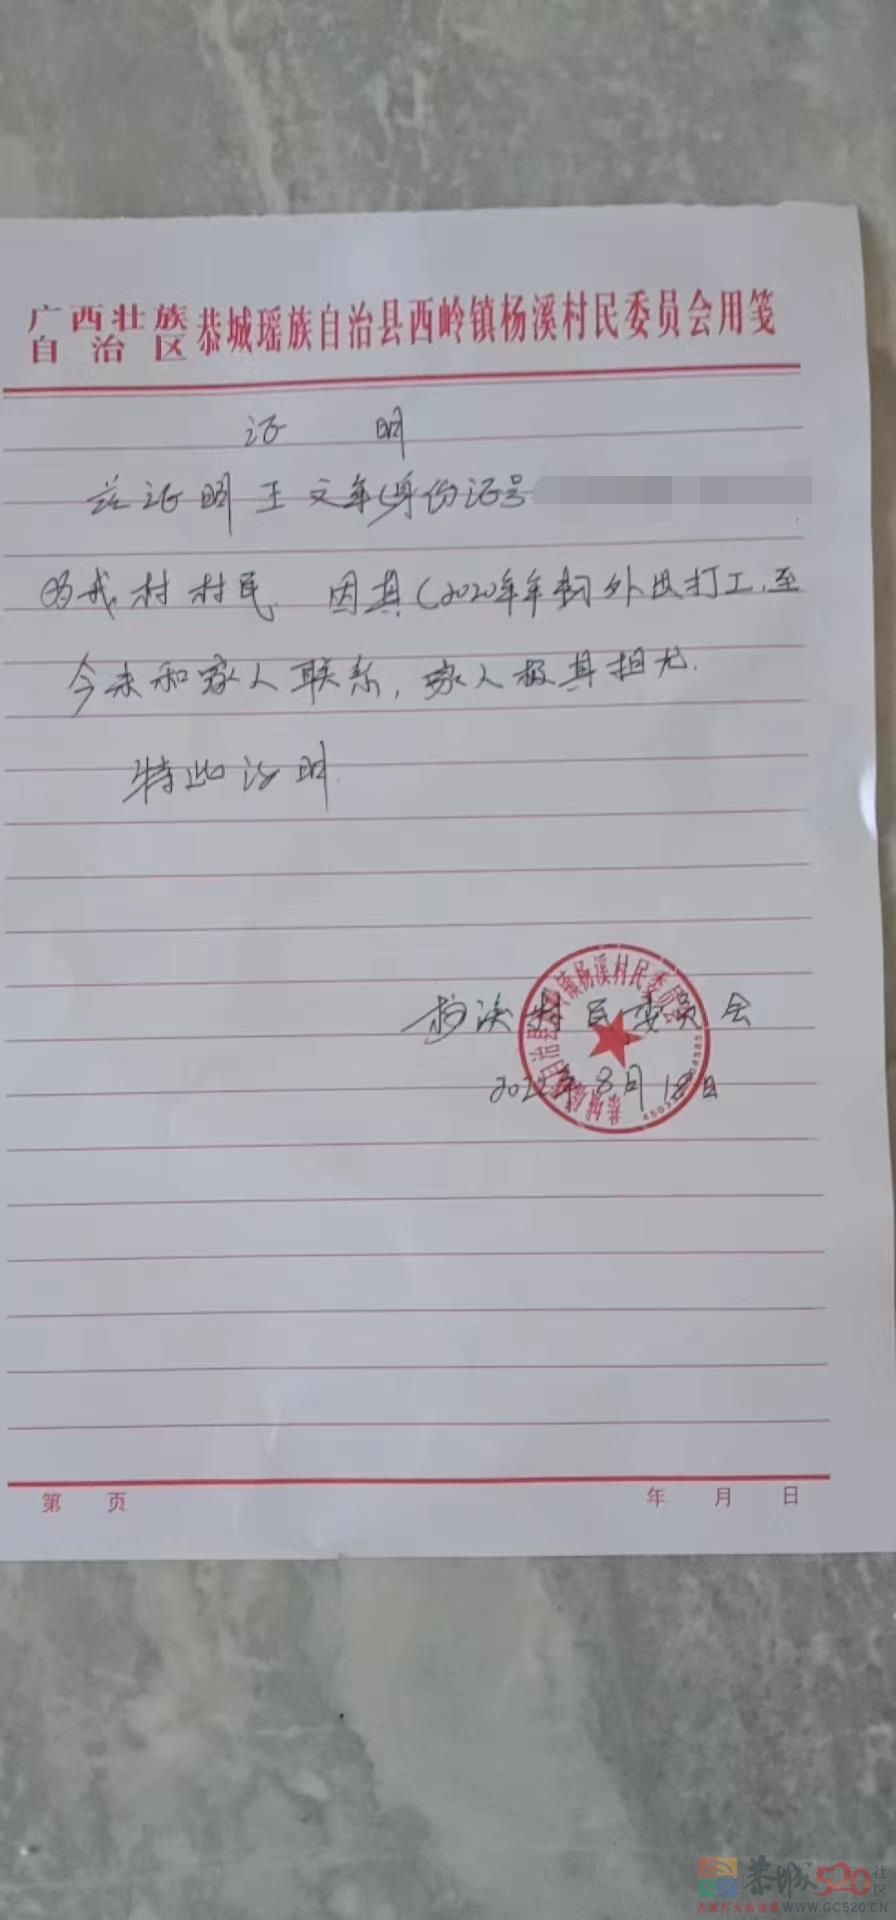 广西壮族自治区恭城瑶族自治县西岭镇杨溪村民委员会用笺
证 明
兹证明王文年(身份证号
为我村村民. 因其(2020年年初外出打工.至
今未和家人联系, 家人极其担尤.
特此证明.
杨溪村民委员会
2022年8月18日
自治县西岭镇杨溪村民委员会
第 页 年 月 日
恭城520社区
WWW.GC520.CN